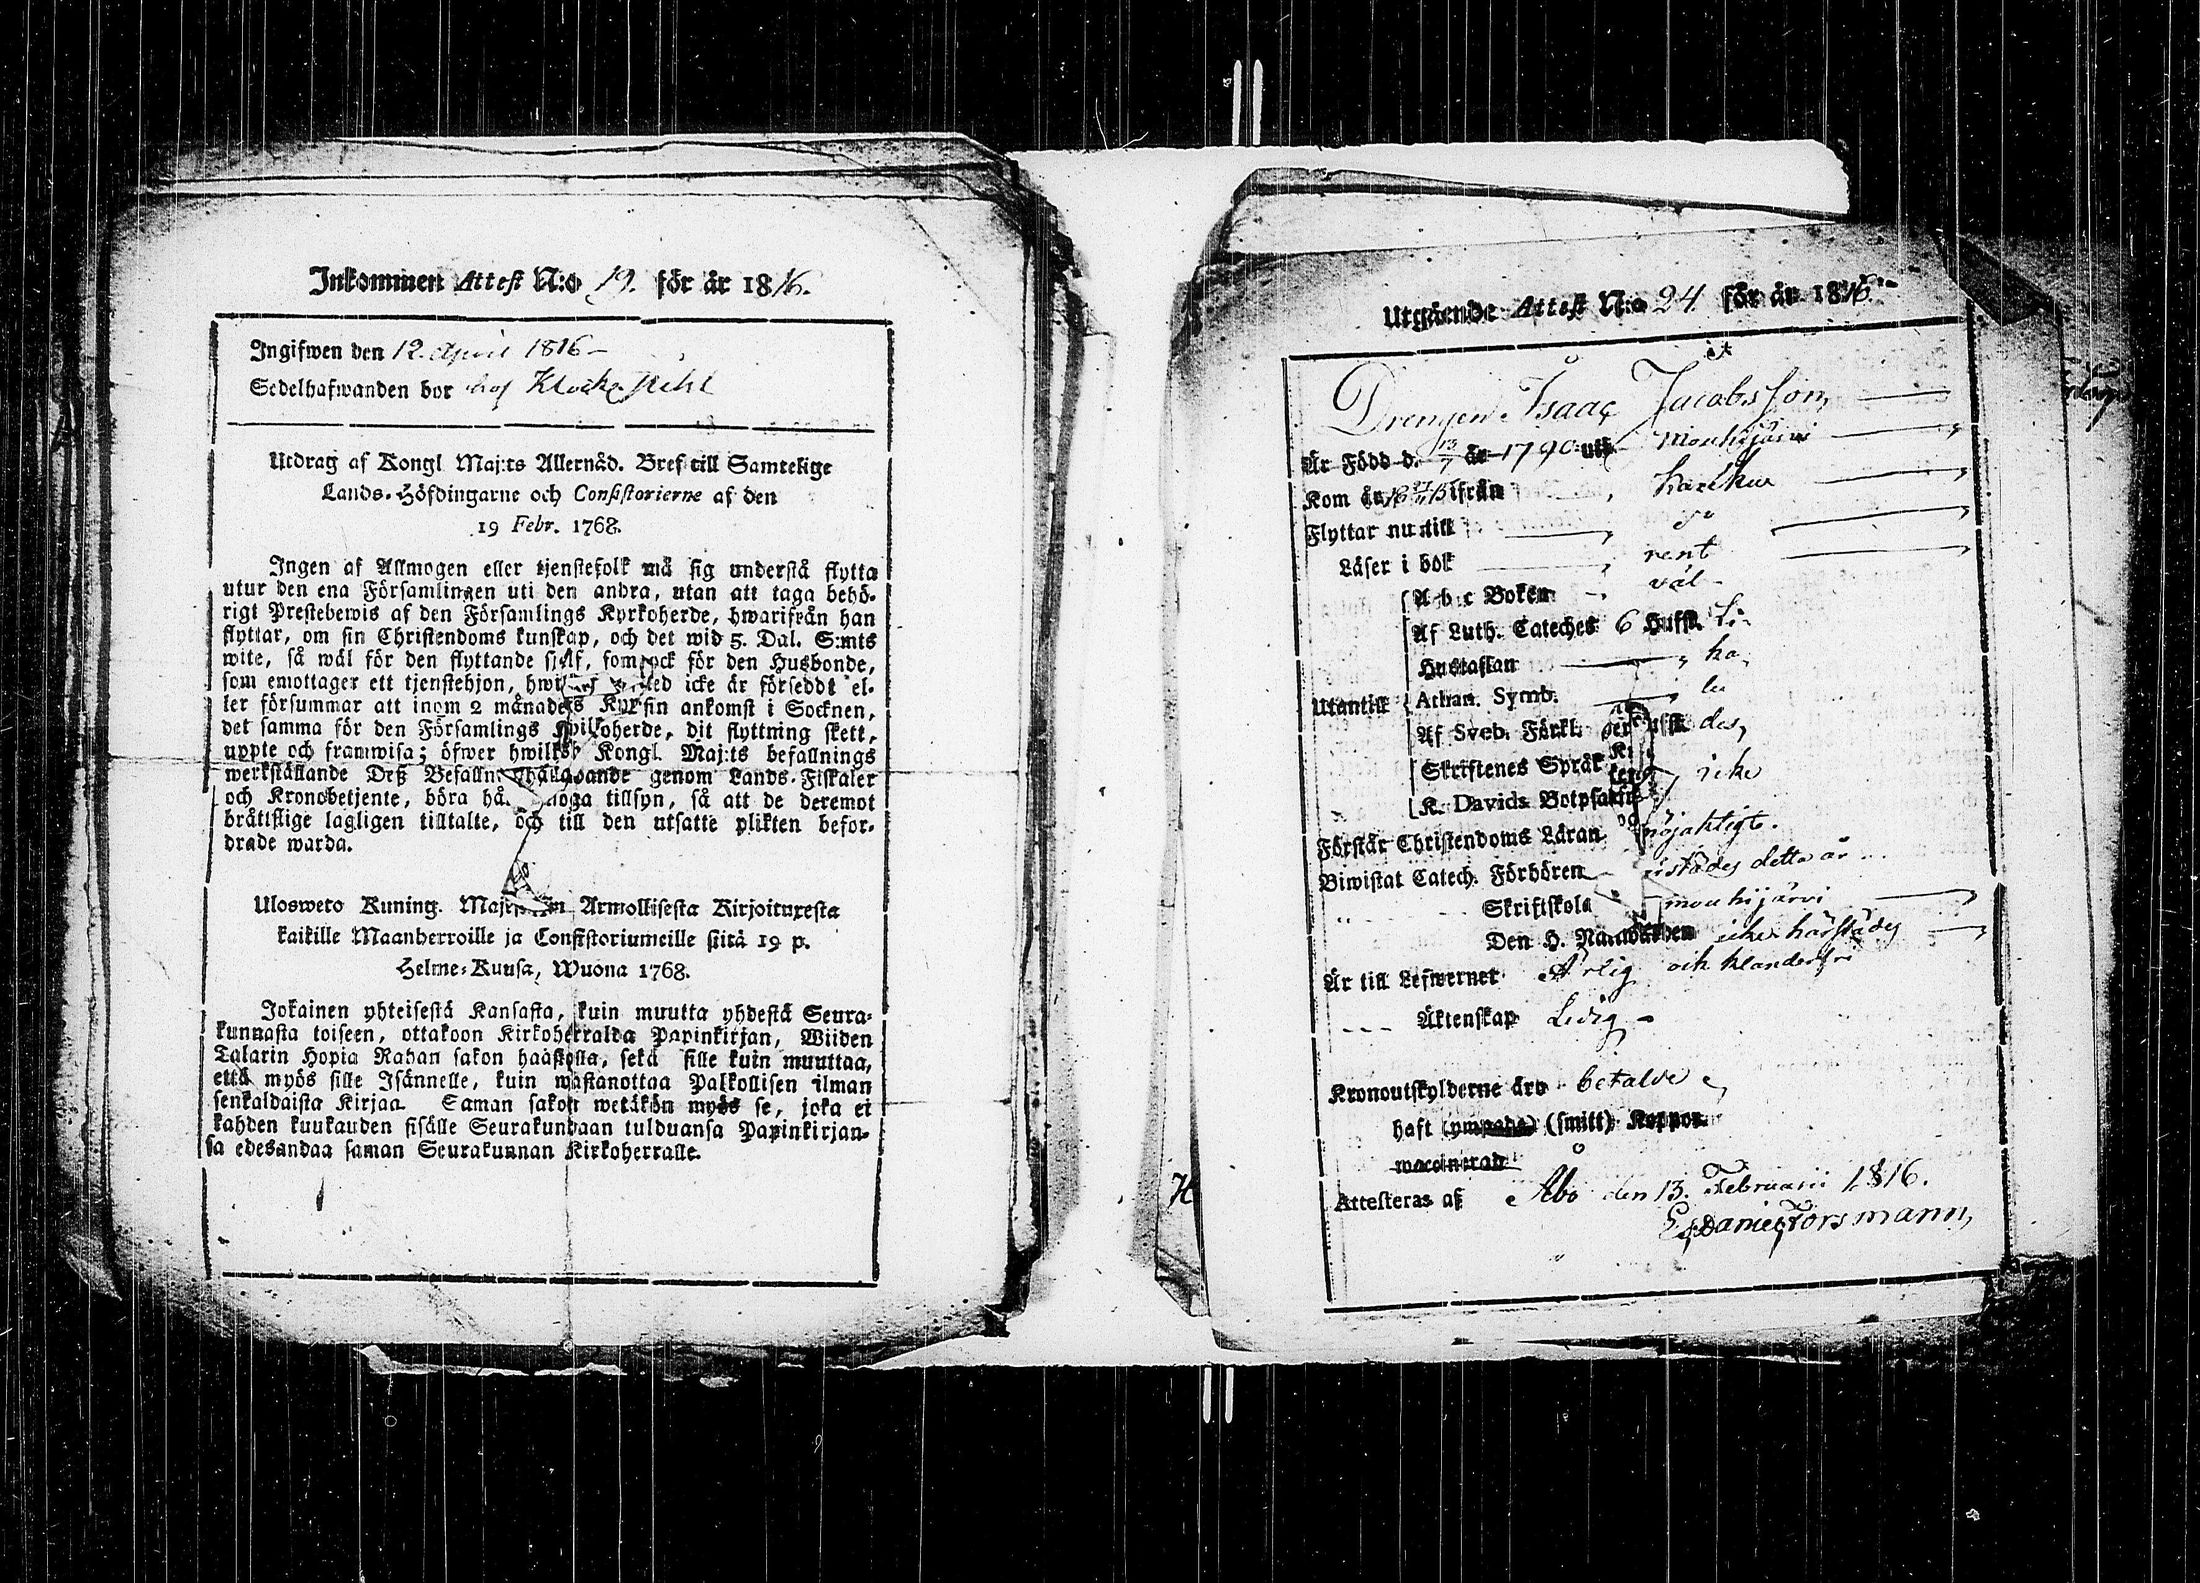 Inkommen Attest N:o 19. för år 1816.
Ingifwen den 12. April 1816 –
Sedelhafwanden bor hos Klock.
Utdrag af Kongl Maj:ts Allernåd. Bref till Samtelige
Lands-Höfdingarne och Consistorierne af den
19 Febr. 1768.
Ingen af Allmogen eller tjenstefolk må sig understå flytta
utur den ena Församlingen uti den andra, utan att taga behö-
rigt Prestebewis af den Församlings Kyrkoherde, hwarifrån han
flyttar, om sin Christendoms kunskap, och det wid 5. Dal. S:mts
wite, så wäl för den flyttande sjelf, som ock för den Husbonde,
som emottager ett tjenstehjon, icke är förseddt el-
ler försummar att inom 2 månader sin ankomst i Socknen,
det samma för den Församlings Kyrkoherde, dit flyttning skett,
uppte och framwisa; öfwer hwilket Kongl. Maj:ts befallnings
werkställande Deß Befallningshafwande genom Lands-Fiskaler
och Kronobetjente, böra hålla noga tillsyn, så att de deremot
bråttslige lagligen tilltalte, och till den utsatte plikten befor-
drade warda.
Uloswero Kuning. Majestetin Armollisesta Kirjoituxesta
kaikille Maanherroille ja Consistoriumeille siitä 19 p.
Helme-Kuusa, Wuona 1768.
Jokainen yhteisestä Kansasta, kuin muutta yhdestä Seura-
kunnasta toiseen, ottakoon Kirkoherralda Papinkirjan, Wiiden
Talarin Hopia Rahan sakon haastolla, sekä sille kuin muuttaa,
että myös sille Isännelle, kuin wastanottaa Palkollisen ilman
senkaldaista Kirjaa. Saman sakon wetäkön myös se, joka ei
kahden kuukauden sisälle Seurakundaan tulduansa Papinkirjan-
sa edesandaa saman Seurakunnan Kirkoherralle.
Utgående Attest N:o 24 för år 1816.
Drengen Isaac Jacobsson
Är Född d. 13/7 år 1790 uti Mouhijärvi
Kom år ifrån Karkku
Flyttar nu till
Läser i bok rent
A b c Boken väl
Af Luth. Cateches 6 Hufst.
Hustaflan
Utantill Athan. Symb.
Af Sveb. Förkl.
Skriftenes Språk
K. Davids Botpsalm icke
Förstår Christendoms Läran nöjaktigt.
Biwistat Catech. Förhören detta år
Skriftskola mouhijärvi
Den H. Nattwarden icke härstädes
Är till Lefwernet Ärlig och klanderfri
Äktenskap Ledig –
Kronoutskylderne äro betalde
haft (ympade) (smitt) Koppor
waccinerad
Attesteras af Åbo den 13. Februarii 1816.
Daniel Forsmann